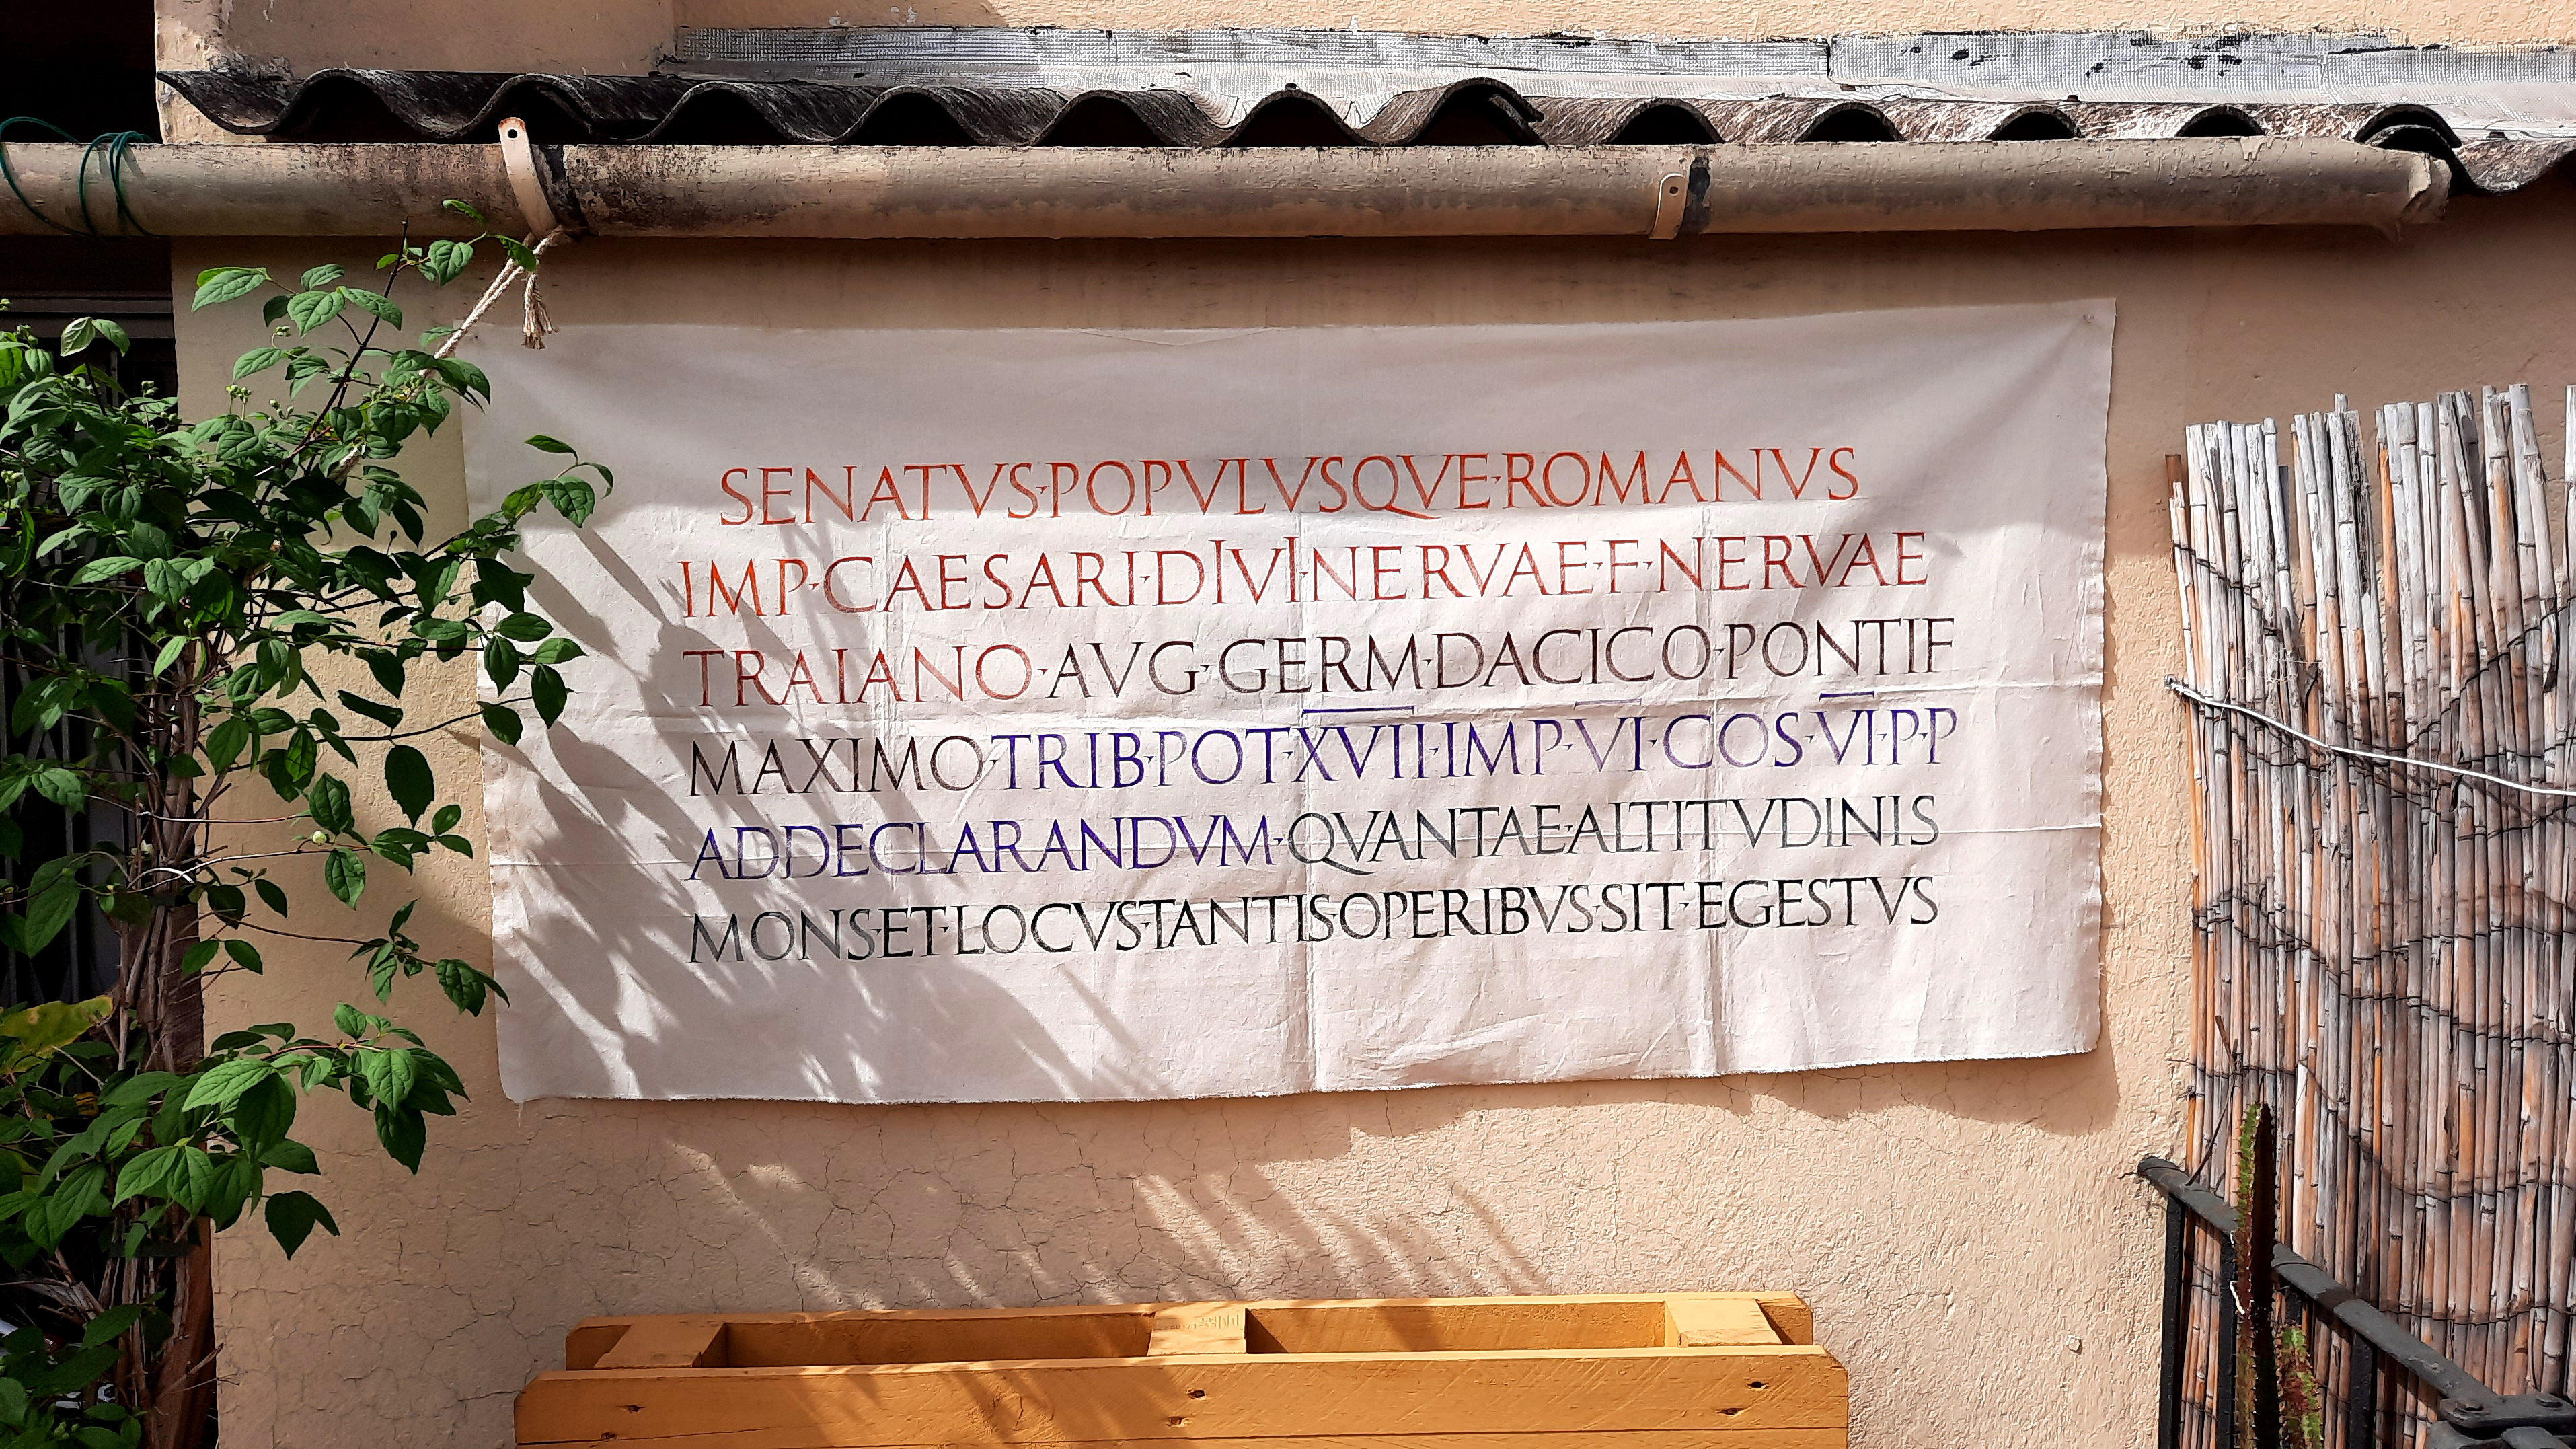 SENATVS·POPVLVSQVE·ROMANVS
IMP·CAESARI·DIVI·NERVAE·F·NERVAE
TRAIANO·AVG·GERM·DACICO·PONTIF
MAXIMO·TRIB·POT·XVII·IMP·VI·COS·VI·P·P
ADDECLARANDVM·QVANTAE·ALTITVDINIS
MONS·ET·LOCVSTANTIS·OPERIBVS·SIT·EGESTVS